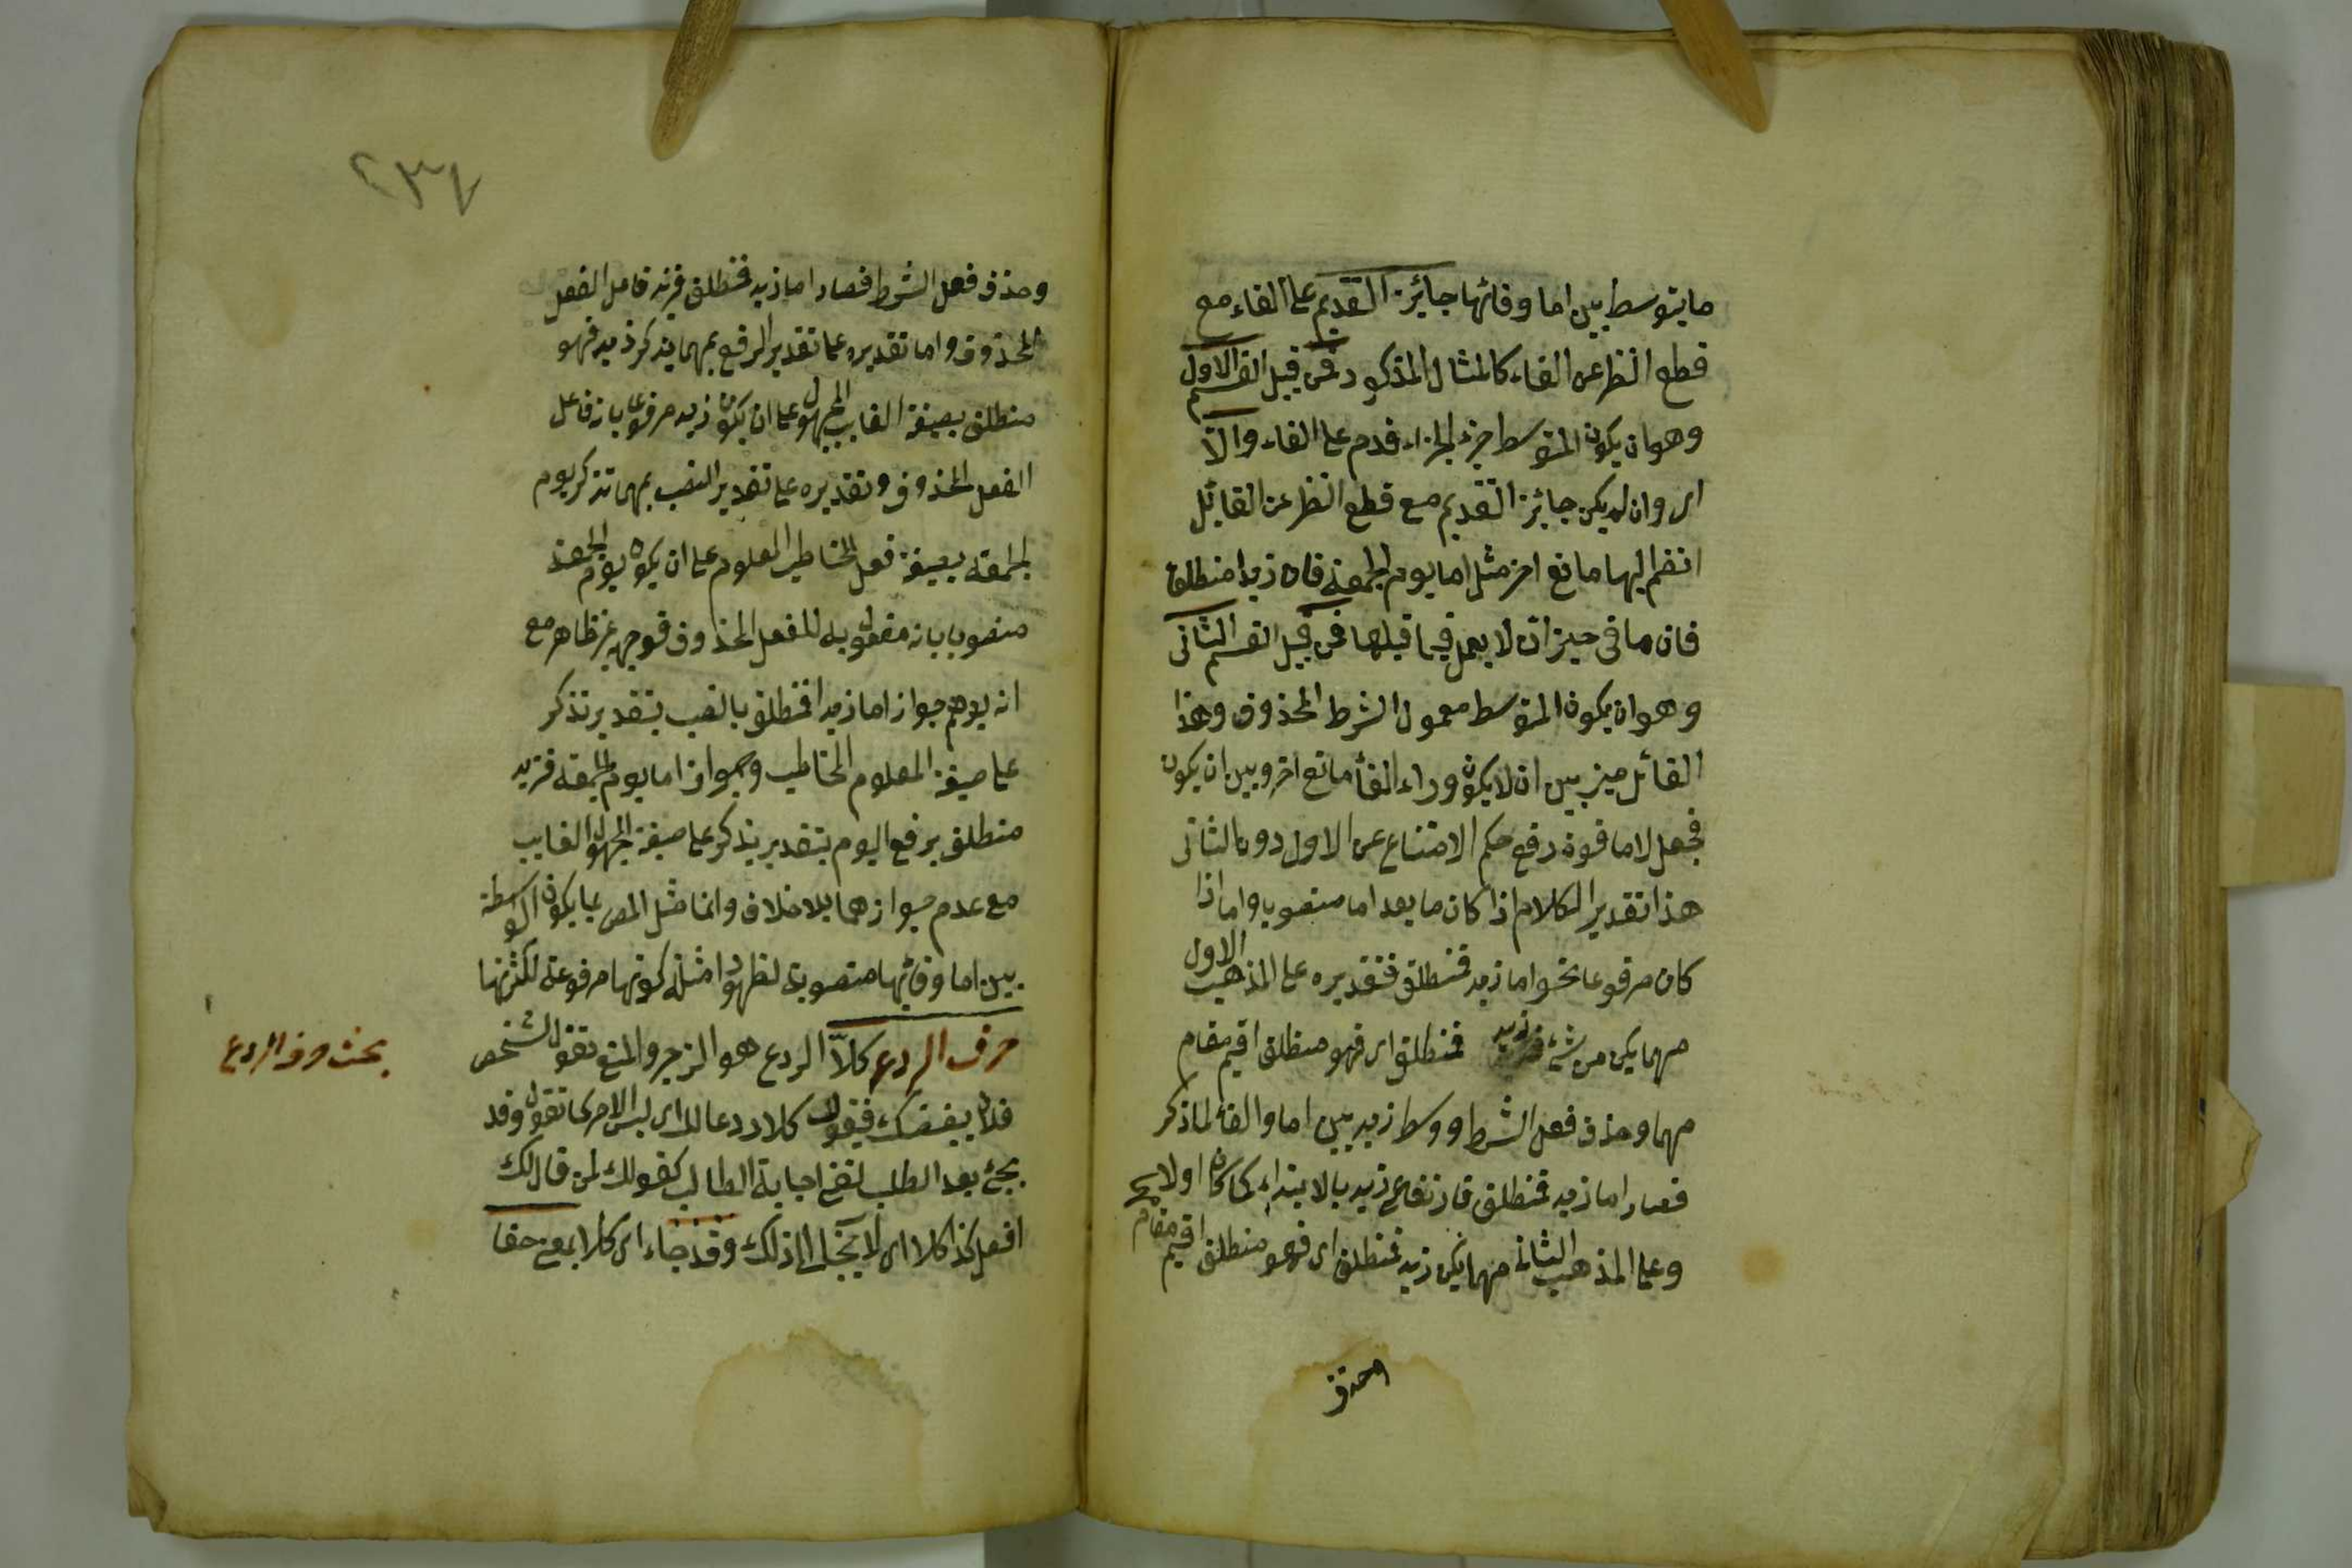 ما يتوسط بين اما وفائها جائز التقديم على الفاء مع
قطع النظر عن الفاء كالمثال المذكور فمن قبيل القسم الاول
وهو ان يكون المتوسط جزء الجزاء قدم على الفاء والا
اى وان لم يكن جائز التقديم مع قطع النظر عن الفا بل
انضم اليها مانع اخر مثل اما يوم الجمعة فان زيدا منطلق
فان ما فى حيز ان لا يعمل فيما قبلها فمن قبيل القسم الثانى
وهو ان يكون المتوسط معمول الشرط المحذوف وهذا
القائل ميز بين ان لا يكون وراء الفاء مانع اخر وبين ان يكون
فجعل لاما قوة رفع حكم الامتناع عن الاول دون الثانى
هذا تقدير الكلام اذا كان ما بعد اما منصوبا واما اذا
كان مرفوعا نحو اما زيد فمنطلق فتقديره على المذهب الاول
مهما يكن من شئ فزيد فمنطلق اى فهو منطلق اقيم مقام
مهما وحذف فعل الشرط ووسط زيد بين اما والفاء لما ذكر
فصار اما زيد فمنطلق فارتفاع زيد بالابتداء كما كان اولا
وعلى المذهب الثانى مهما يكن زيد فمنطلق اى فهو منطلق اقيم مقام
وحذف
٢٣٧
وحذف فعل الشرط فصار اما زيد فمنطلق فزيد فاعل الفعل
المحذوف واما تقديره على تقدير الرفع بمهما يذكر زيد فهو
منطلق بصيغة الغايب المجهول على ان يكون زيد مرفوعا بانه فاعل
الفعل المحذوف وتقديره على تقدير النصب بمهما تذكر يوم
الجمعة بصيغة فعل المخاطب المعلوم على ان يكون يوم الجمعة
منصوبا بانه مفعول به للفعل المحذوف فوجهه غير ظاهر مع
انه يوهم جواز اما زيدا فمنطلق بالنصب بتقدير تذكر
على صيغة المعلوم المخاطب وبجواز اما يوم الجمعة فزيد
منطلق برفع اليوم بتقدير يذكر على صيغة المجهول الغايب
مع عدم جوازهما بلا خلاف وانما مثل المص بما يكون الواسطة
بين اما وفائها منصوبة لظهور امثلة كونها مرفوعة لكثرتها
حرف الردع كلا الردع هو الزجر والمنع تقول لشخص
بحث حرف الردع
فلان يبغضك فيقول كلا ردعا لك اى ليس الامر كما تقول وقد
يجئ بعد الطلب لنفى اجابة الطالب كقولك لمن قال لك
افعل كذا كلا اى لا يجاب الى ذلك وقد جاء اى كلا بمعنى حقا